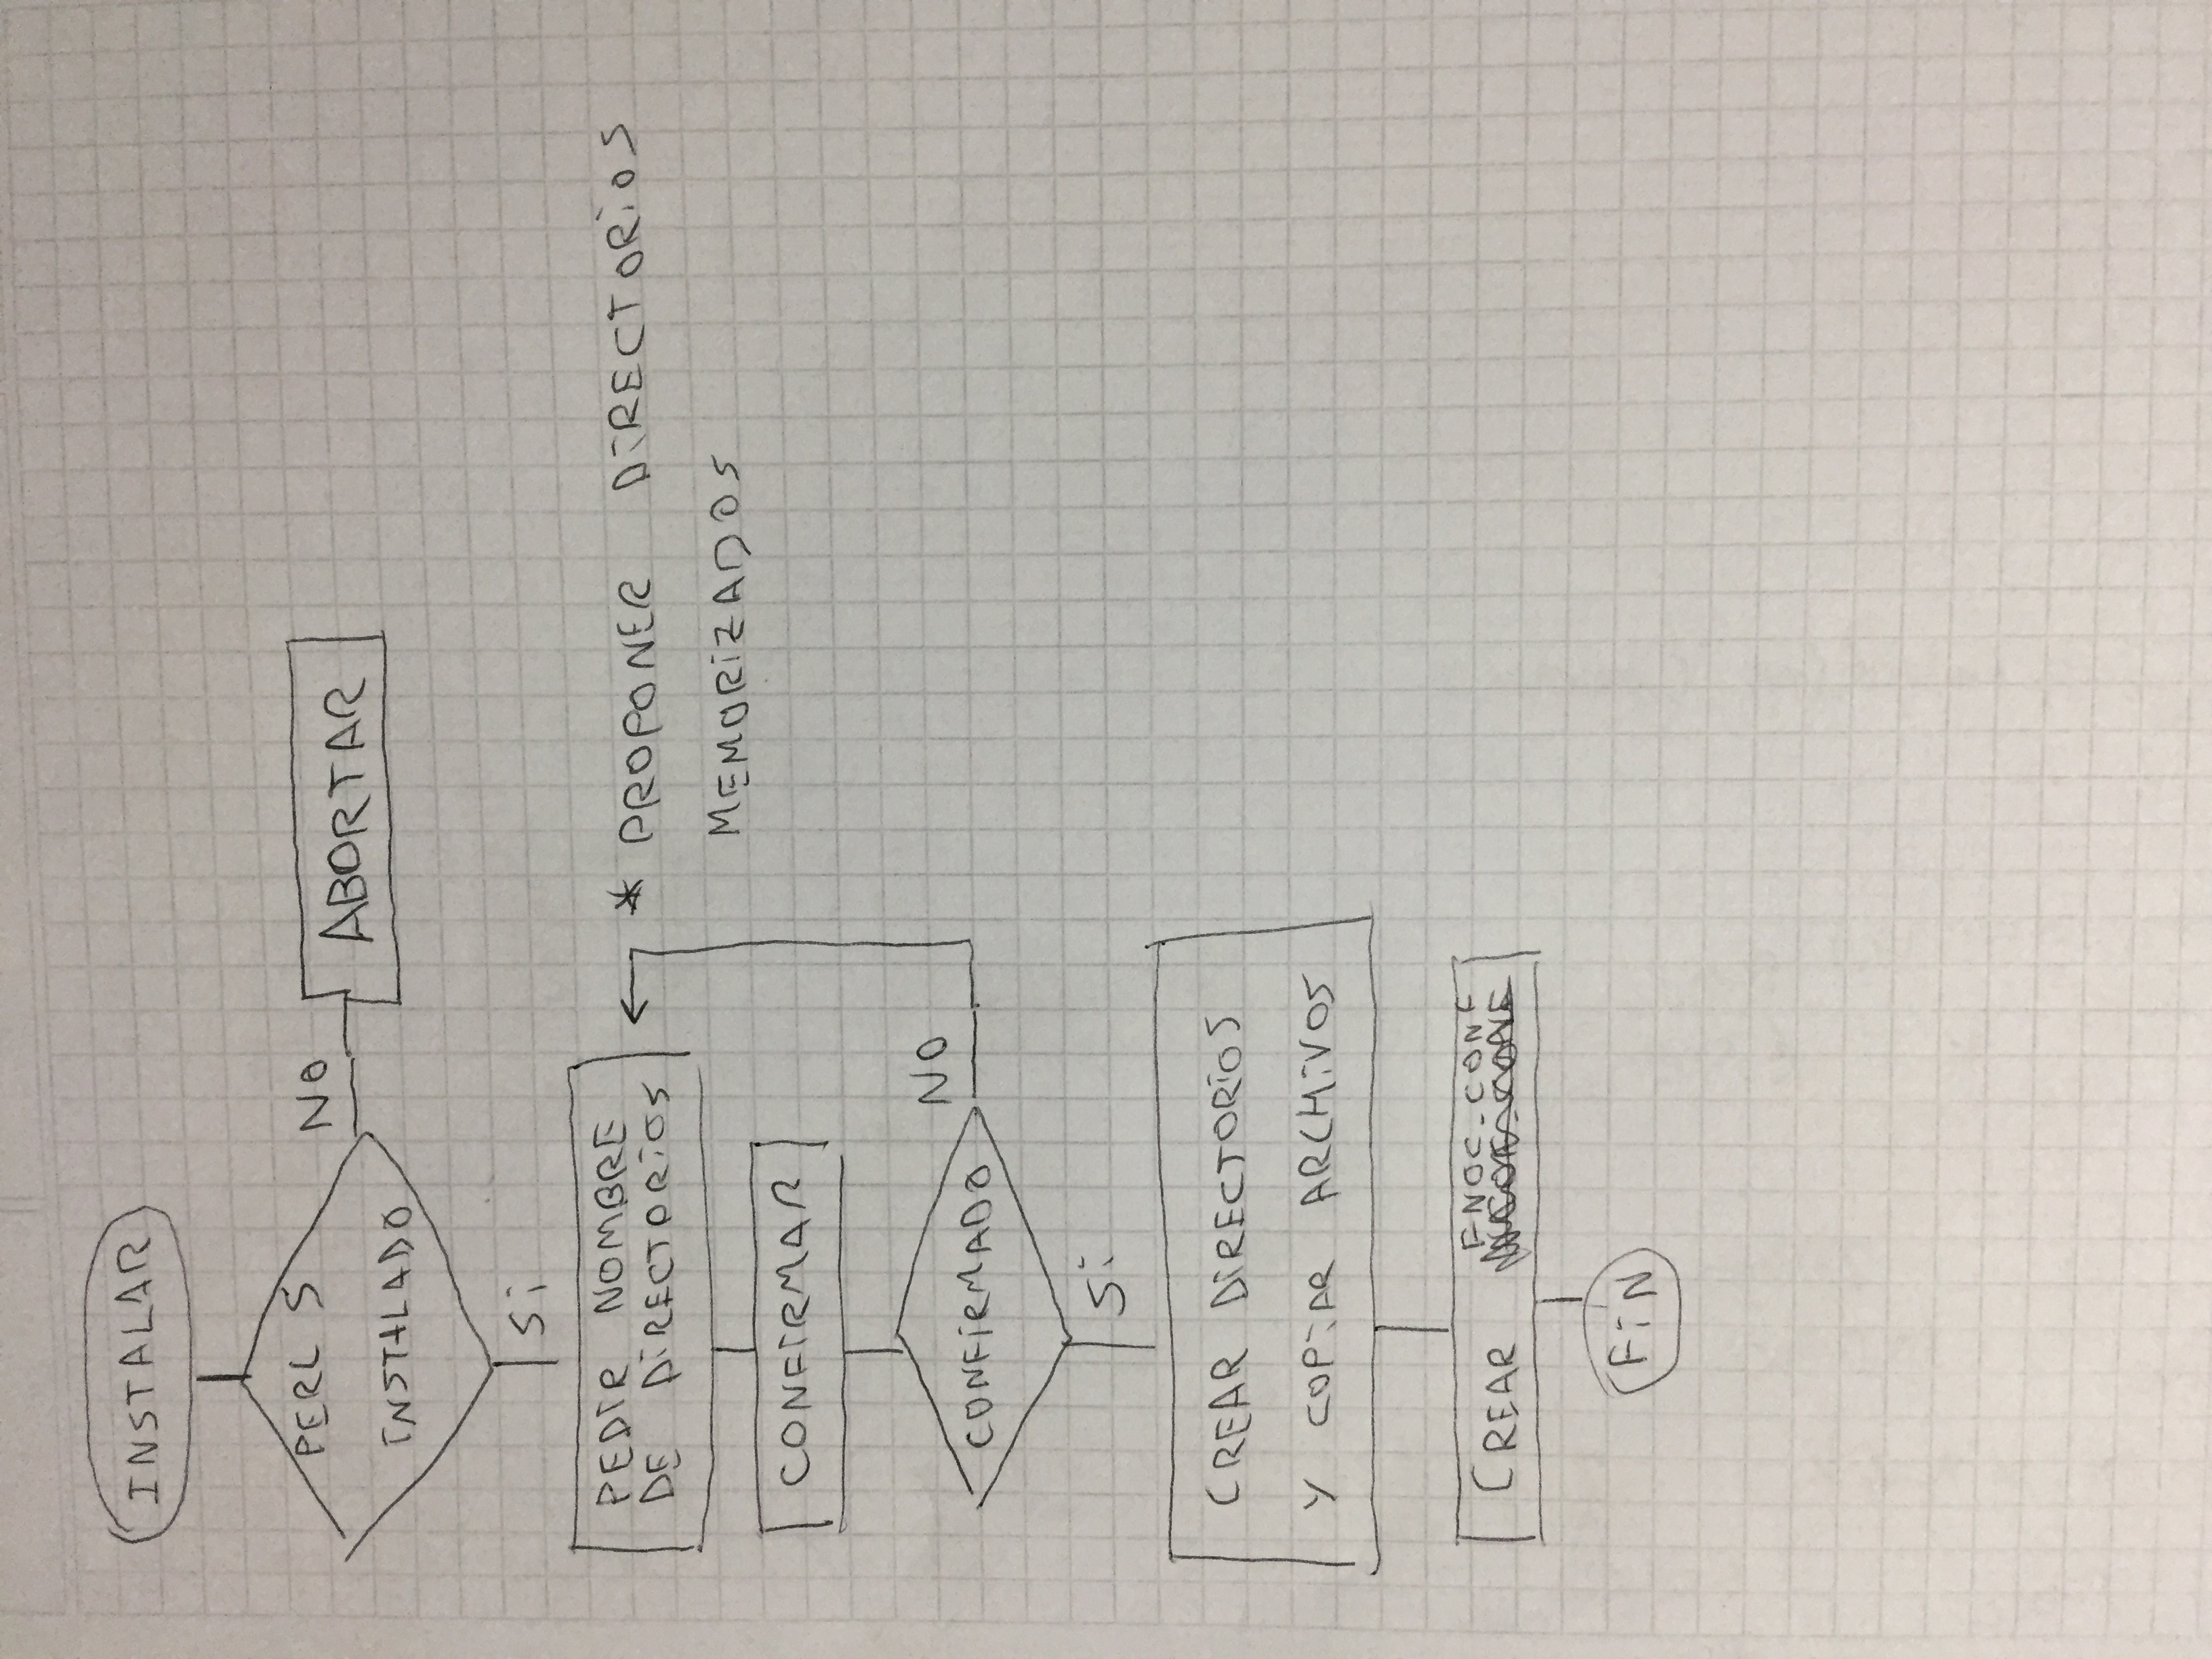 INSTALAR
PERL 5
INSTALADO
NO
ABORTAR
Si
PEDIR NOMBRE
DE DIRECTORIOS
* PROPONER DIRECTORIOS
MEMORIZADOS
CONFIRMAR
CONFIRMADO
NO
Si
CREAR DIRECTORIOS
Y COPIAR ARCHIVOS
CREAR FNOC.CONF
FIN